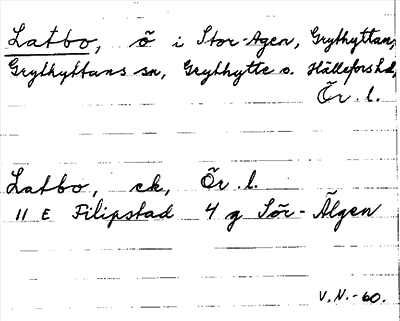 Latbo, ö i Stor-Agen, Grythyttan,
Grythyttans sn, Grythytte o. Hällefors hd,
Ör. l.
Latbo, ek, Ör. l.
11 E Filipstad 4 g Sör-Älgen
V.N.-60.